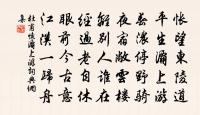 悵望東陵道
平生灞上游
春濃停野騎
夜宿敞雲樓
離別人誰在
經過老自休
眼前今古意
江漢一歸舟
杜甫懷灞上游詞典網
集